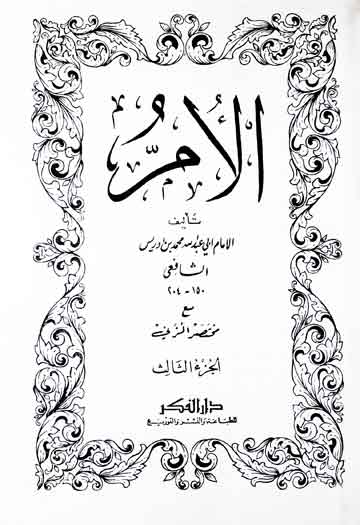 الأُمُّ
تأليف
الإمام أبي عبد الله محمد بن إدريس
الشافعي
١٥٠ - ٢٠٤
مع
مختصر المزني
الجزء الثالث
دار الفكر
للطباعة والنشر والتوزيع